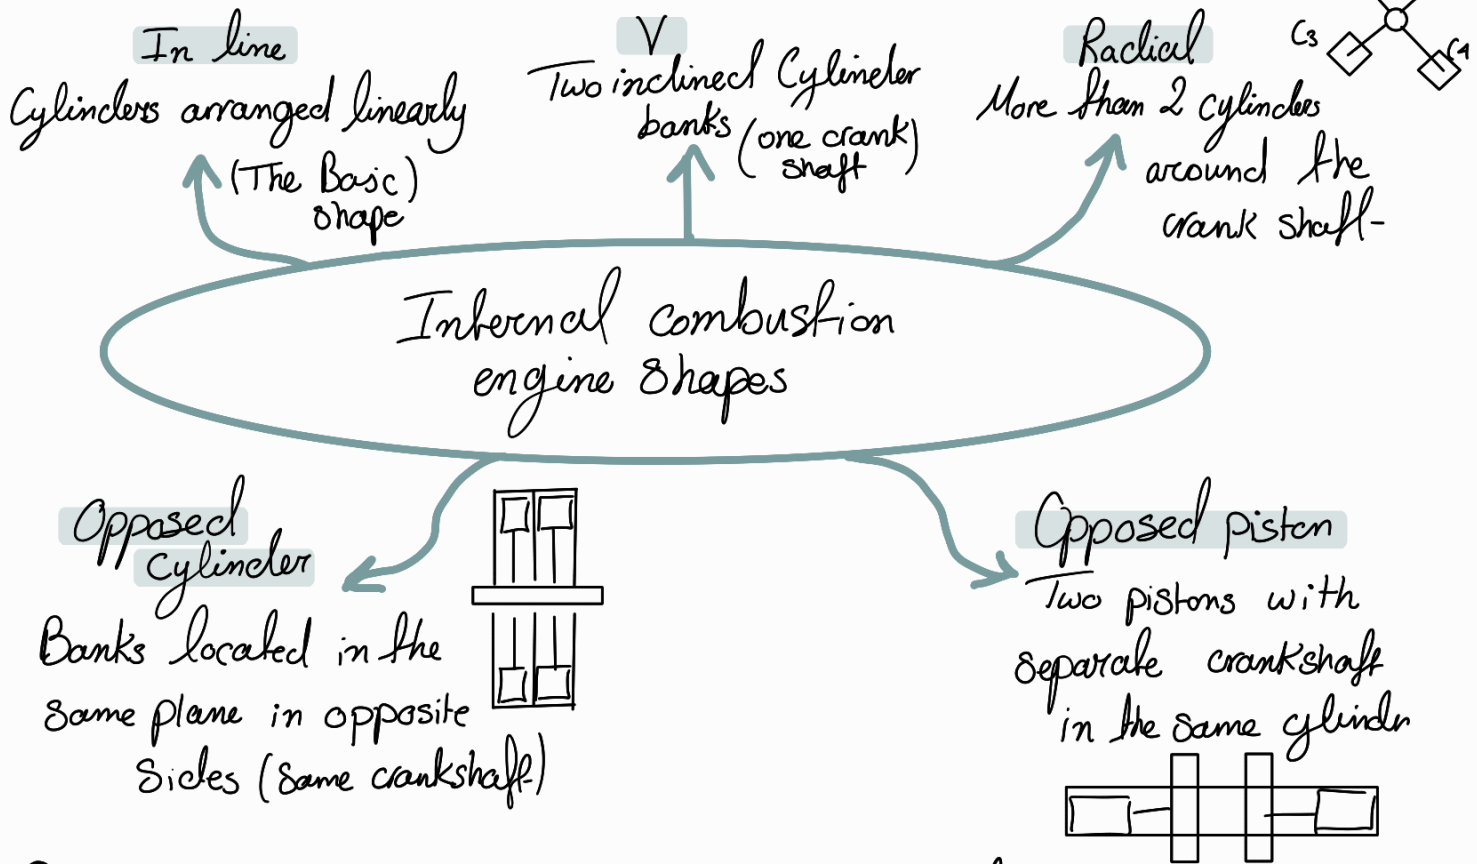 In line
Cylinders arranged linearly
(The Basic)
shape
V
Two inclined Cylinder
banks (one crank)
shaft
Radial
More than 2 cylinders
around the
crank shaft
C3
C4
Internal combustion
engine shapes
Opposed
cylinder
Banks located in the
same plane in opposite
sides (same crankshaft)
Opposed piston
Two pistons with
separate crankshaft
in the same cylinder